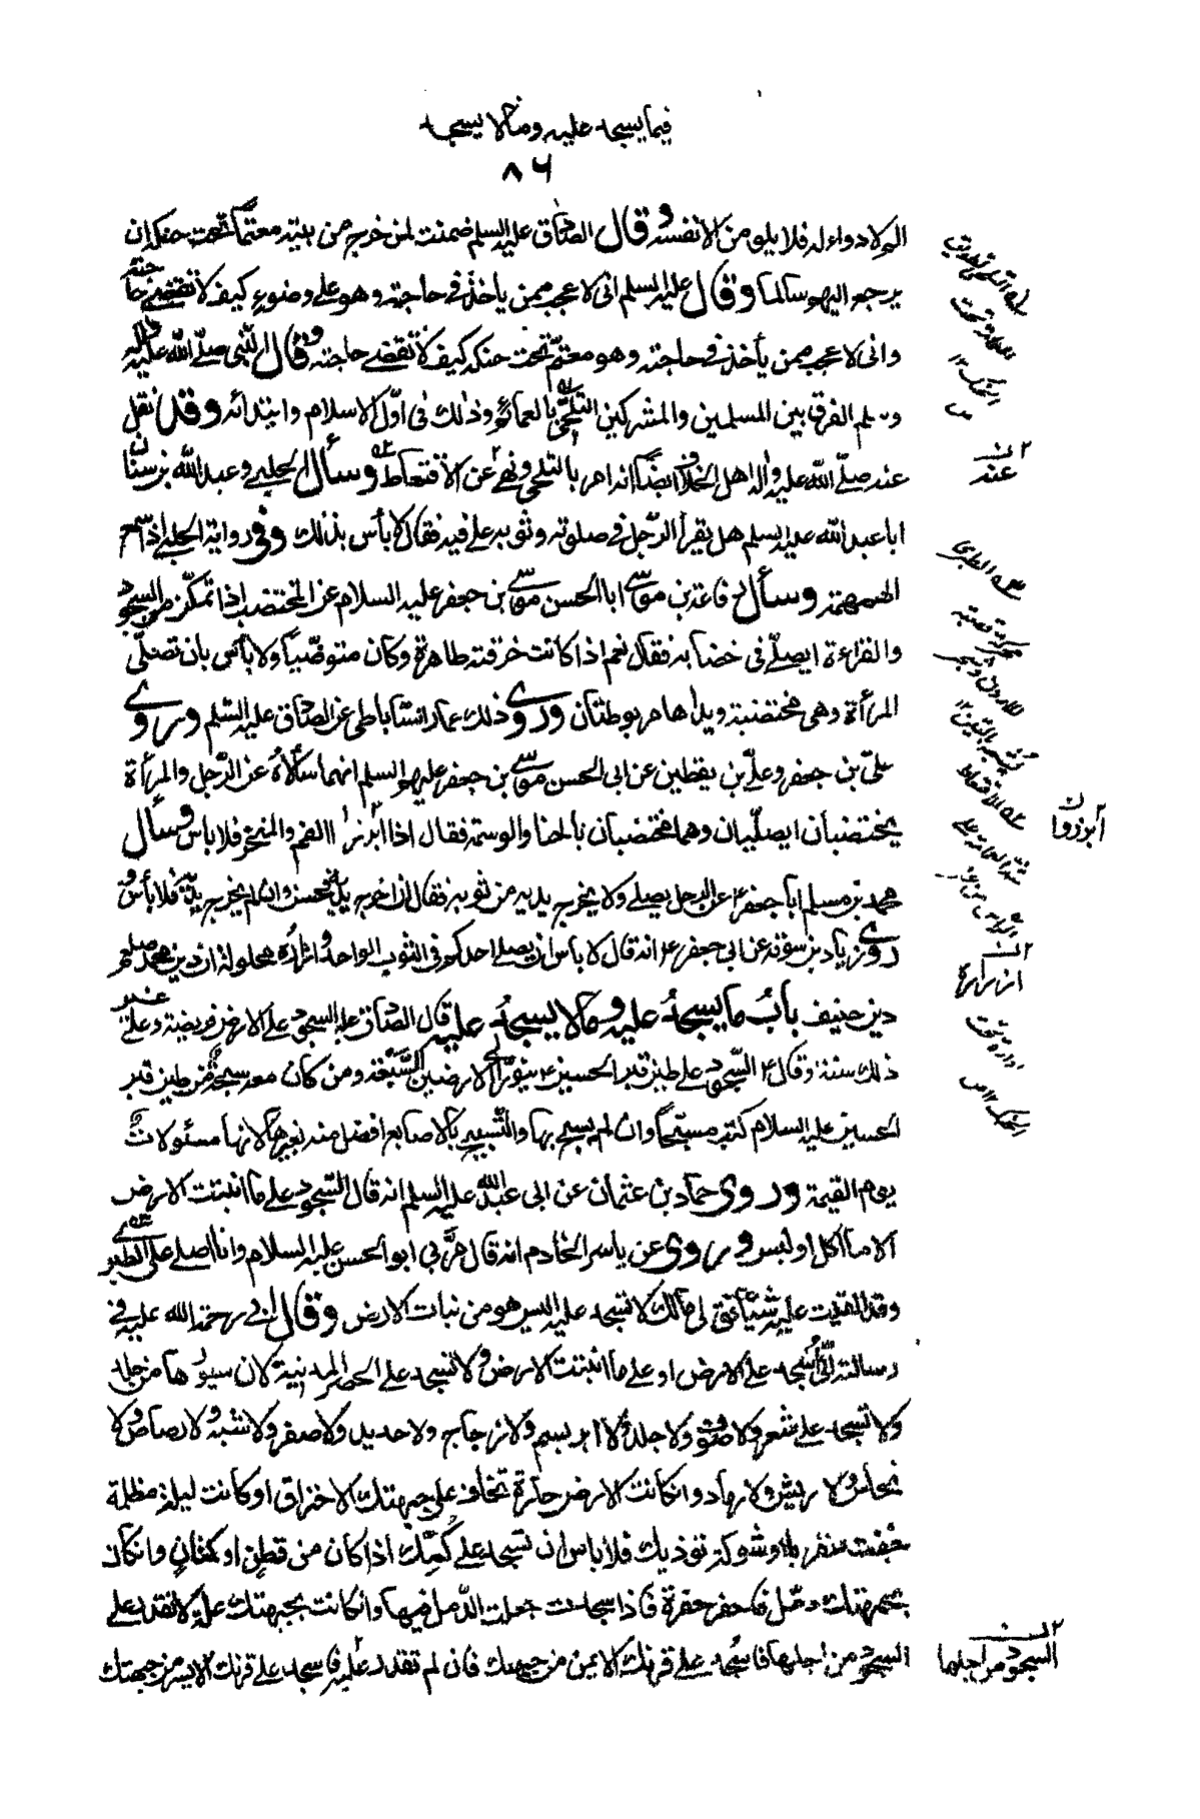 فيما يسجد عليه وما لا يسجد
٨٦
له فلا يلومن الا نفسه وقال الصادق عليه السلم ضمنت لمن خرج من بيته معتما تحت حنكه ان
يرجع اليهم سالما وقال عليه السلم انى لاعجب ممن ياخذ فى حاجته وهو على وضوء كيف لا تقضى حاجته
وانى لاعجب ممن يأخذ فى حاجته وهو معتم تحت حنكه كيف لا تقضى حاجته وقال النبى صلى الله عليه واله
وسلم الفرق بين المسلمين والمشركين التلحى بالعمائم وذلك فى اول الاسلام وابتدائه وقد نقل
عنه صلى الله عليه واله اهل الخلاف ايضا انه امر بالتلحى ونهى عن الاقتعاط وسأل الحلبى وعبد الله بن سنان
ابا عبد الله عليه السلم هل يقرأ الرجل فى صلوته وثوبه على فيه فقال لا بأس بذلك وفى رواية الحلبى اذا سمع
الهمهمة وسأل رفاعة بن موسى ابا الحسن موسى بن جعفر عليه السلام عن المختضب اذا تمكن من السجود
والقراءة ايصلى فى خضابه فقال نعم اذا كانت خرقته طاهرة وكان متوضيا ولا بأس بان تصلى
المرأة وهى مختضبة ويداها مربوطتان وروى ذلك عمار الساباطى عن الصادق عليه السلم وروى
على بن جعفر وعلى بن يقطين عن ابى الحسن موسى بن جعفر عليهم السلم انهما سألاه عن الرجل والمرأة
يختضبان ايصليان وهما مختضبان بالحنا والوسمة فقال اذا ابرزا الفم والمنخر فلا باس وسأل
محمد بن مسلم ابا جعفر ع عن الرجل يصلى ولا يخرج يديه من ثوبه فقال ان اخرج يديه فحسن وان لم يخرج يديه فلا بأس و
روى زياد بن سوقة عن ابى جعفر ع انه قال لا بأس ان يصلى احدكم فى الثوب الواحد وازراره محلولة ان دين محمد صلعم
دين حنيف باب ما يسجد عليه وما لا يسجد عليه قال الصادق ع السجود على الارض فريضة وعلى غير
ذلك سنة وقال ع السجود على طين قبر الحسين ع ينور الى الارضين السبعة ومن كان معه سبحة من طين قبر
الحسين عليه السلام كتب مسبحا وان لم يسبح بها والتسبيح بالاصابع افضل منه بغيرها لانها مسئولات
يوم القيمة وروى حماد بن عثمان عن ابى عبد الله عليه السلم انه قال السجود على ما انبتت الارض
الا ما اكل او لبس وروى عن ياسر الخادم انه قال مر بى ابو الحسن عليه السلام وانا اصلى على الطبرى
وقد القيت عليه شيئا فقال لى مالك لا تسجد عليه اليس هو من نبات الارض وقال ابى رحمة الله عليه فى
رسالته الى اسجد على الارض او على ما انبتت الارض ولا تسجد على الحصر المدنية لان سيورها من جلد
ولا تسجد على شعر ولا صوف ولا جلد ولا ابريسم ولا زجاج ولا حديد ولا صفر ولا شبه ولا رصاص ولا
نحاس ولا ريش ولا رماد وان كانت الارض حارة تخاف على جبهتك الاحتراق او كانت ليلة مظلمة
خفت عقربا او شوكة تؤذيك فلا باس ان تسجد على كمك اذا كان من قطن او كتان وان كان
بجبهتك دمل فاحفر حفرة فاذا سجدت جعلت الدمل فيها وان كانت بجبهتك علة لا تقدر على
السجود من اجلها فاسجد على قرنك الايمن من جبهتك فان لم تقدر عليه فاسجد على قرنك الايسر من جبهتك
عند
السجود من اجلها